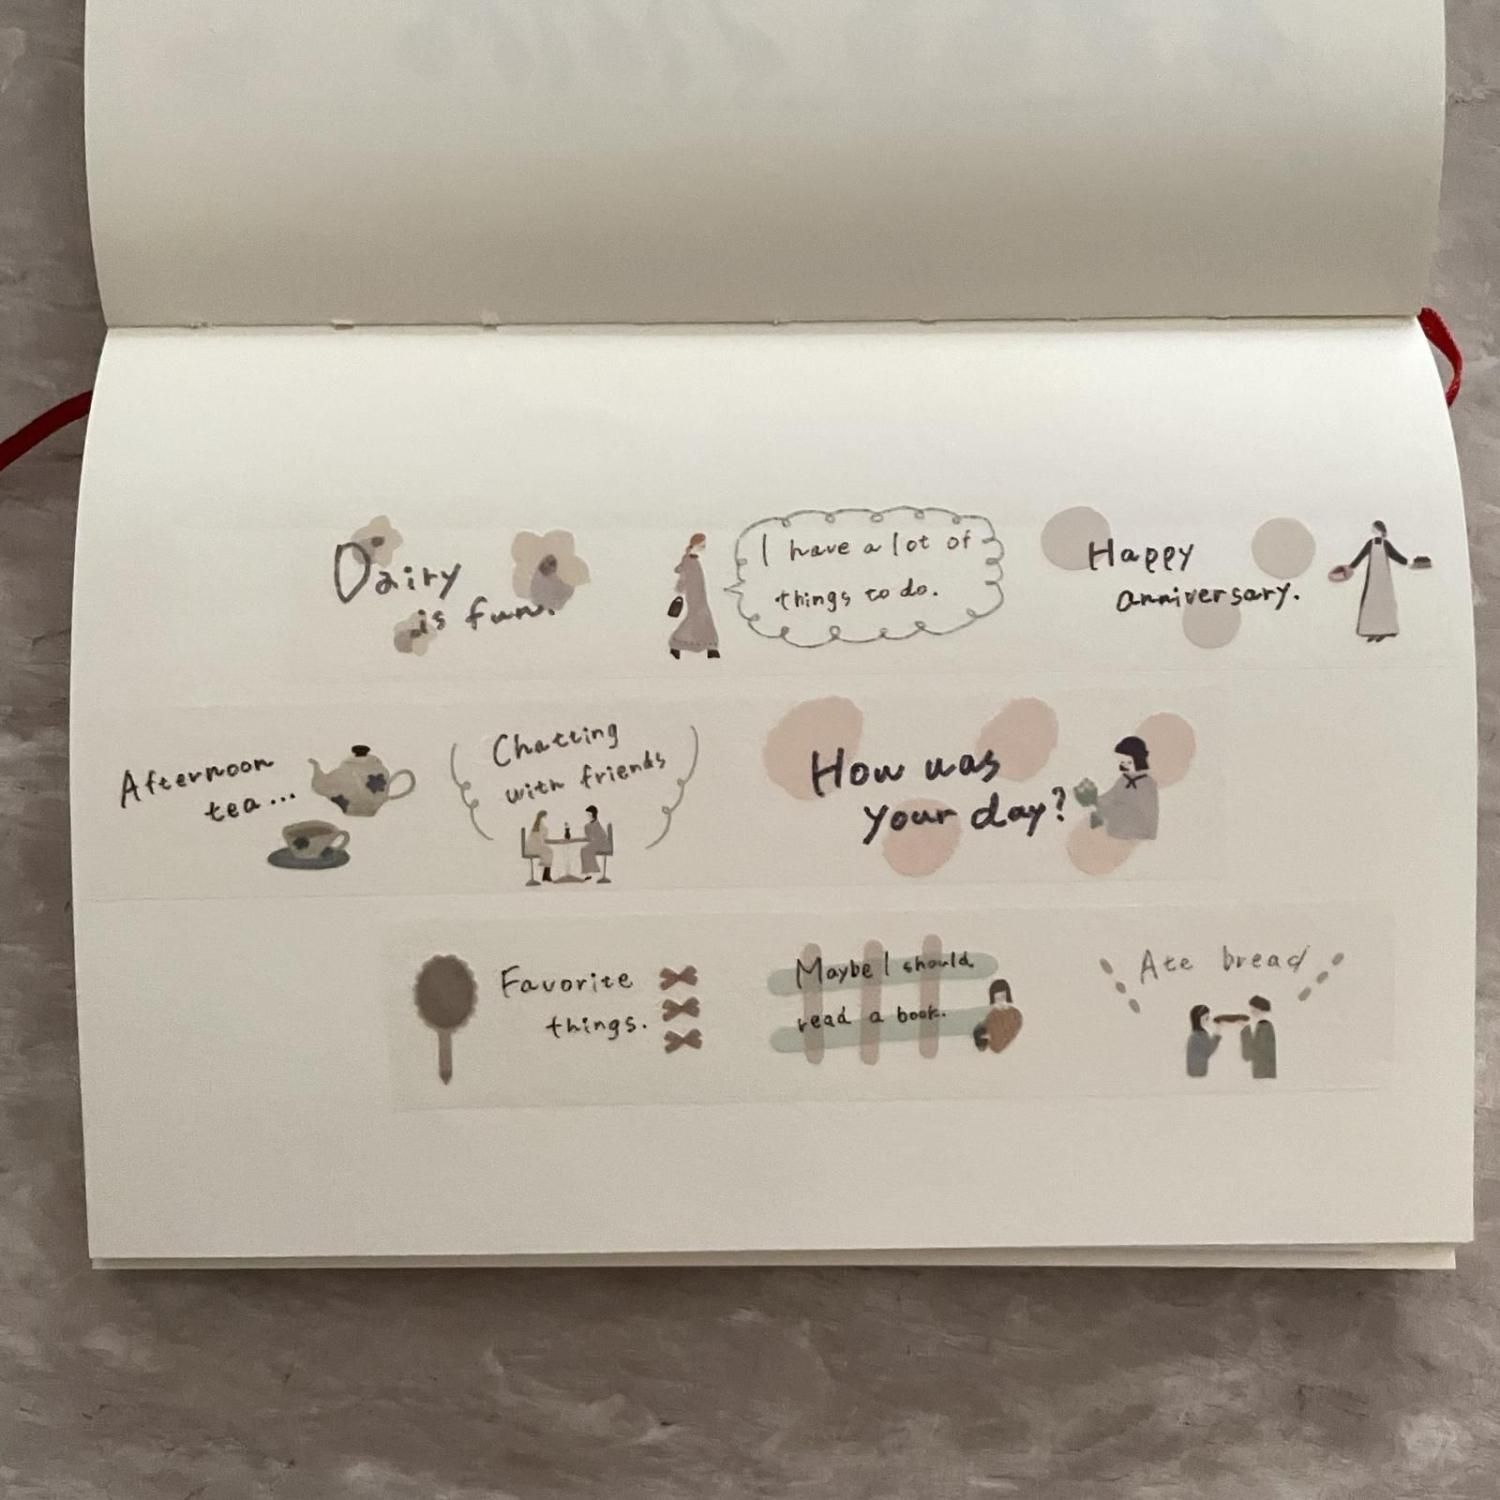 Dairy
is fun.
I have a lot of
things to do.
Happy
anniversary.
Afternoon
tea...
Chatting
with friends
How was
your day?
Favorite
things.
Maybe I should
read a book.
Ate bread